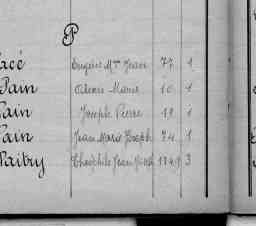 P
acé Eugène Mie Jean 77 1
Pain Alexis Marie 10 1
Pain Joseph Pierre 19 1
Pain Jean Marie Joseph 74 1
Paitry Théophile Jean 1849 3